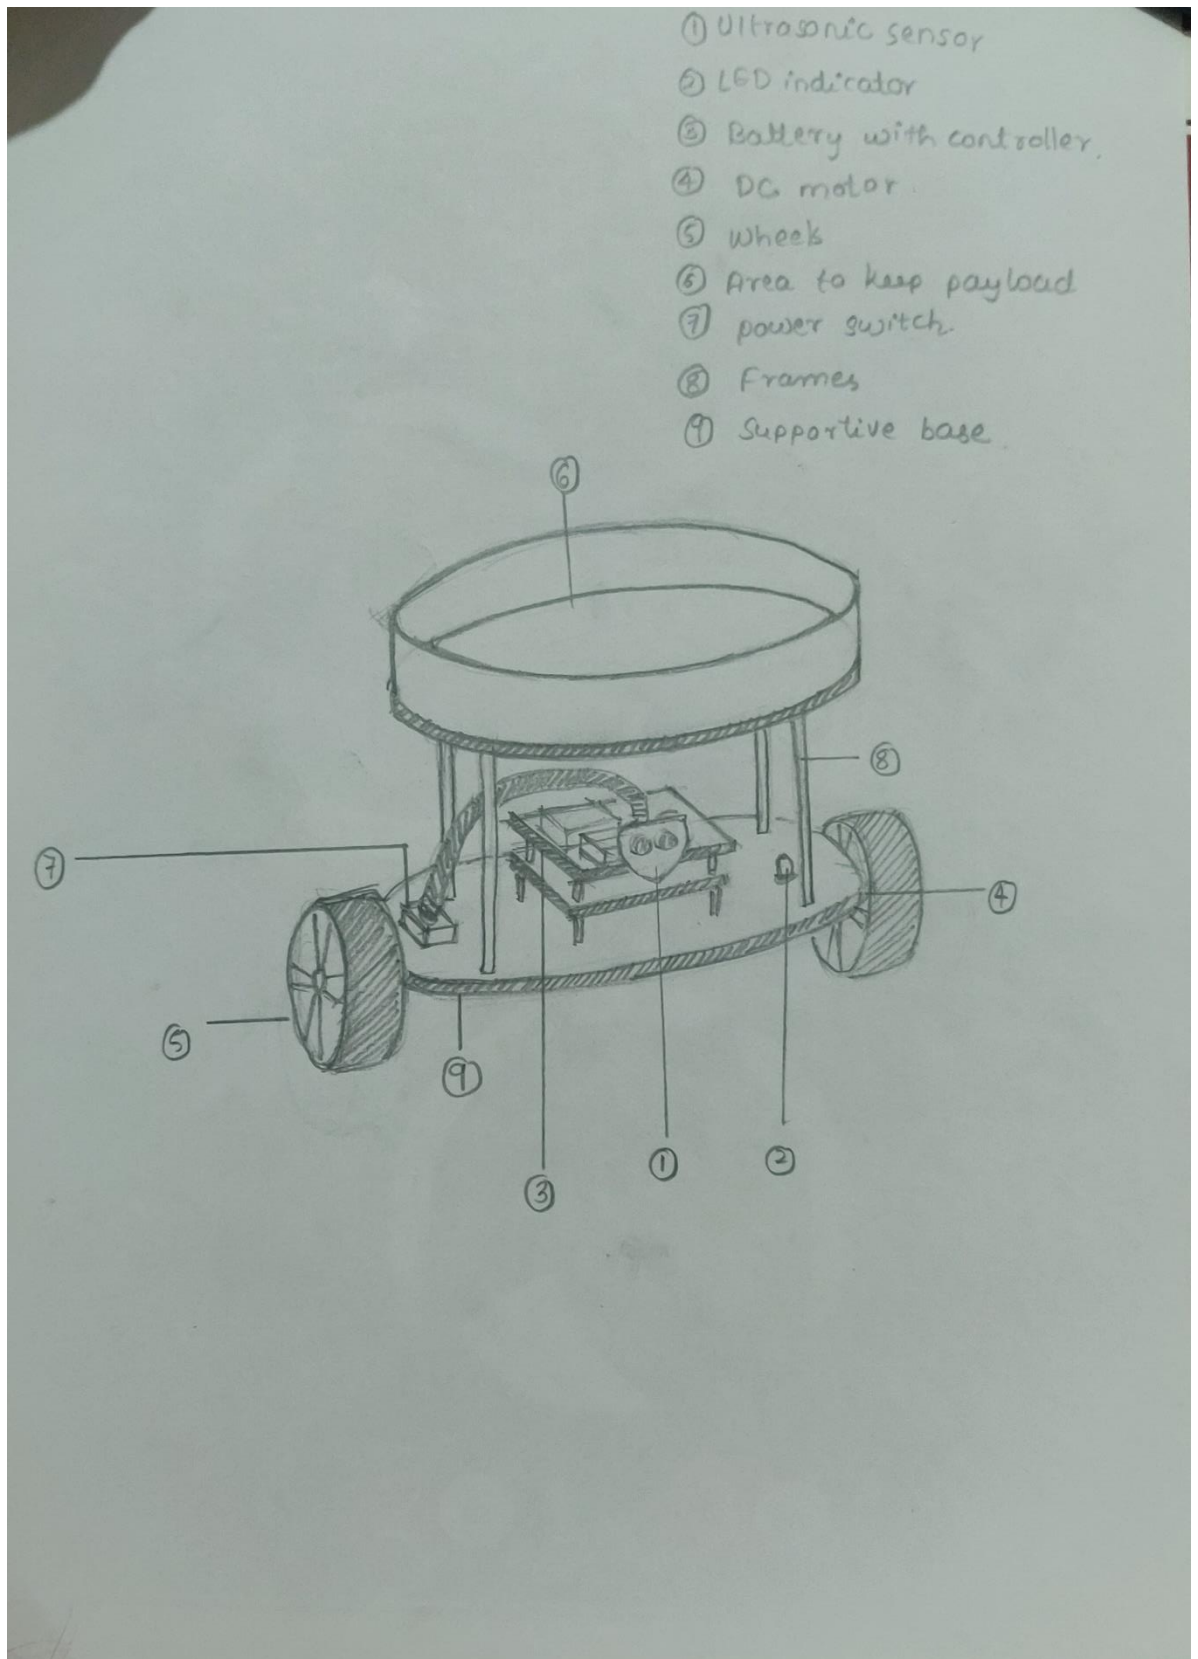 ① Ultrasonic sensor
② LED indicator
③ Battery with controller.
④ DC motor
⑤ Wheels
⑥ Area to keep payload
⑦ power switch.
⑧ Frames
⑨ Supportive base
⑥
⑧
⑦
④
⑤
⑨
①
②
③